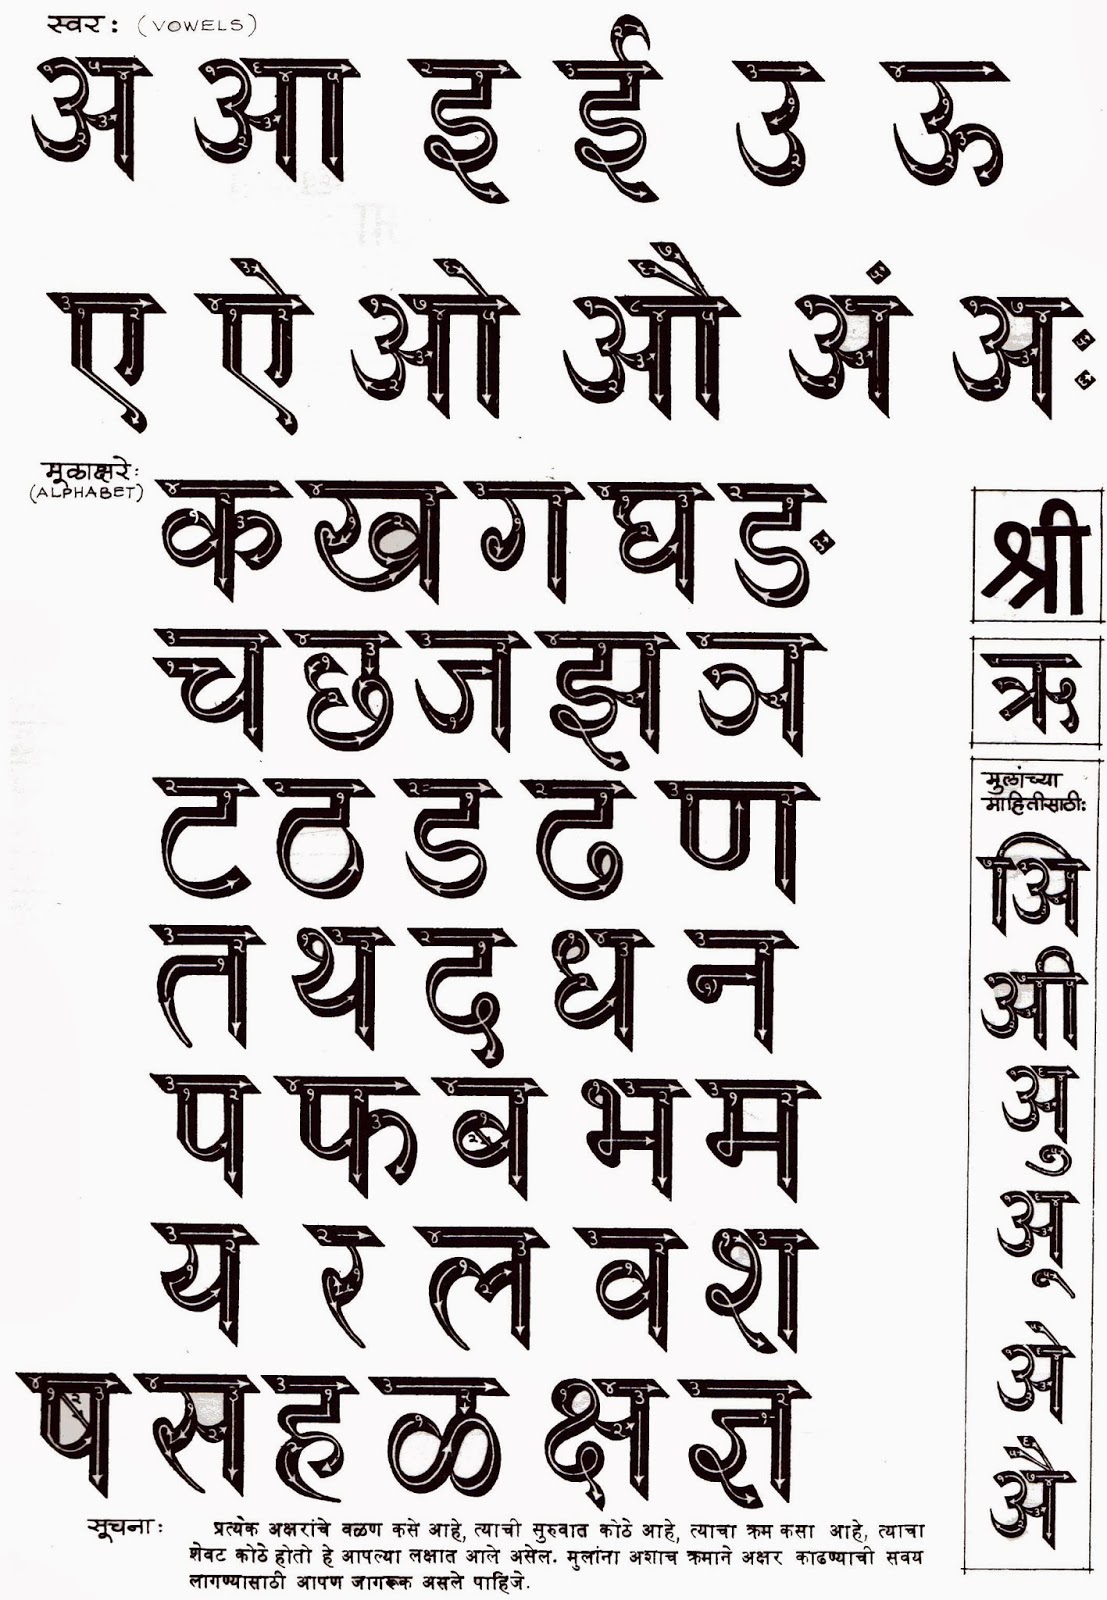 स्वर : (VOWELS)
अ आ इ ई उ ऊ
ए ऐ ओ औ अं अः
मूळाक्षरे:
(ALPHABET)
क ख ग घ ङ
च छ ज झ ञ
ट ठ ड ढ ण
त थ द ध न
प फ ब भ म
य र ल व श
ष स ह ळ क्ष ज्ञ
श्री
ऋ
मुलांच्या
माहितीसाठी:
अि
अी
अु
अू
अे
अै
सूचना: प्रत्येक अक्षरांचे वळण कसे आहे, त्याची सुरुवात कोठे आहे, त्याचा क्रम कसा आहे, त्याचा
शेवट कोठे होतो हे आपल्या लक्षात आले असेल. मुलांना अशाच क्रमाने अक्षर काढण्याची सवय
लागण्यासाठी आपण जागरूक असले पाहिजे.